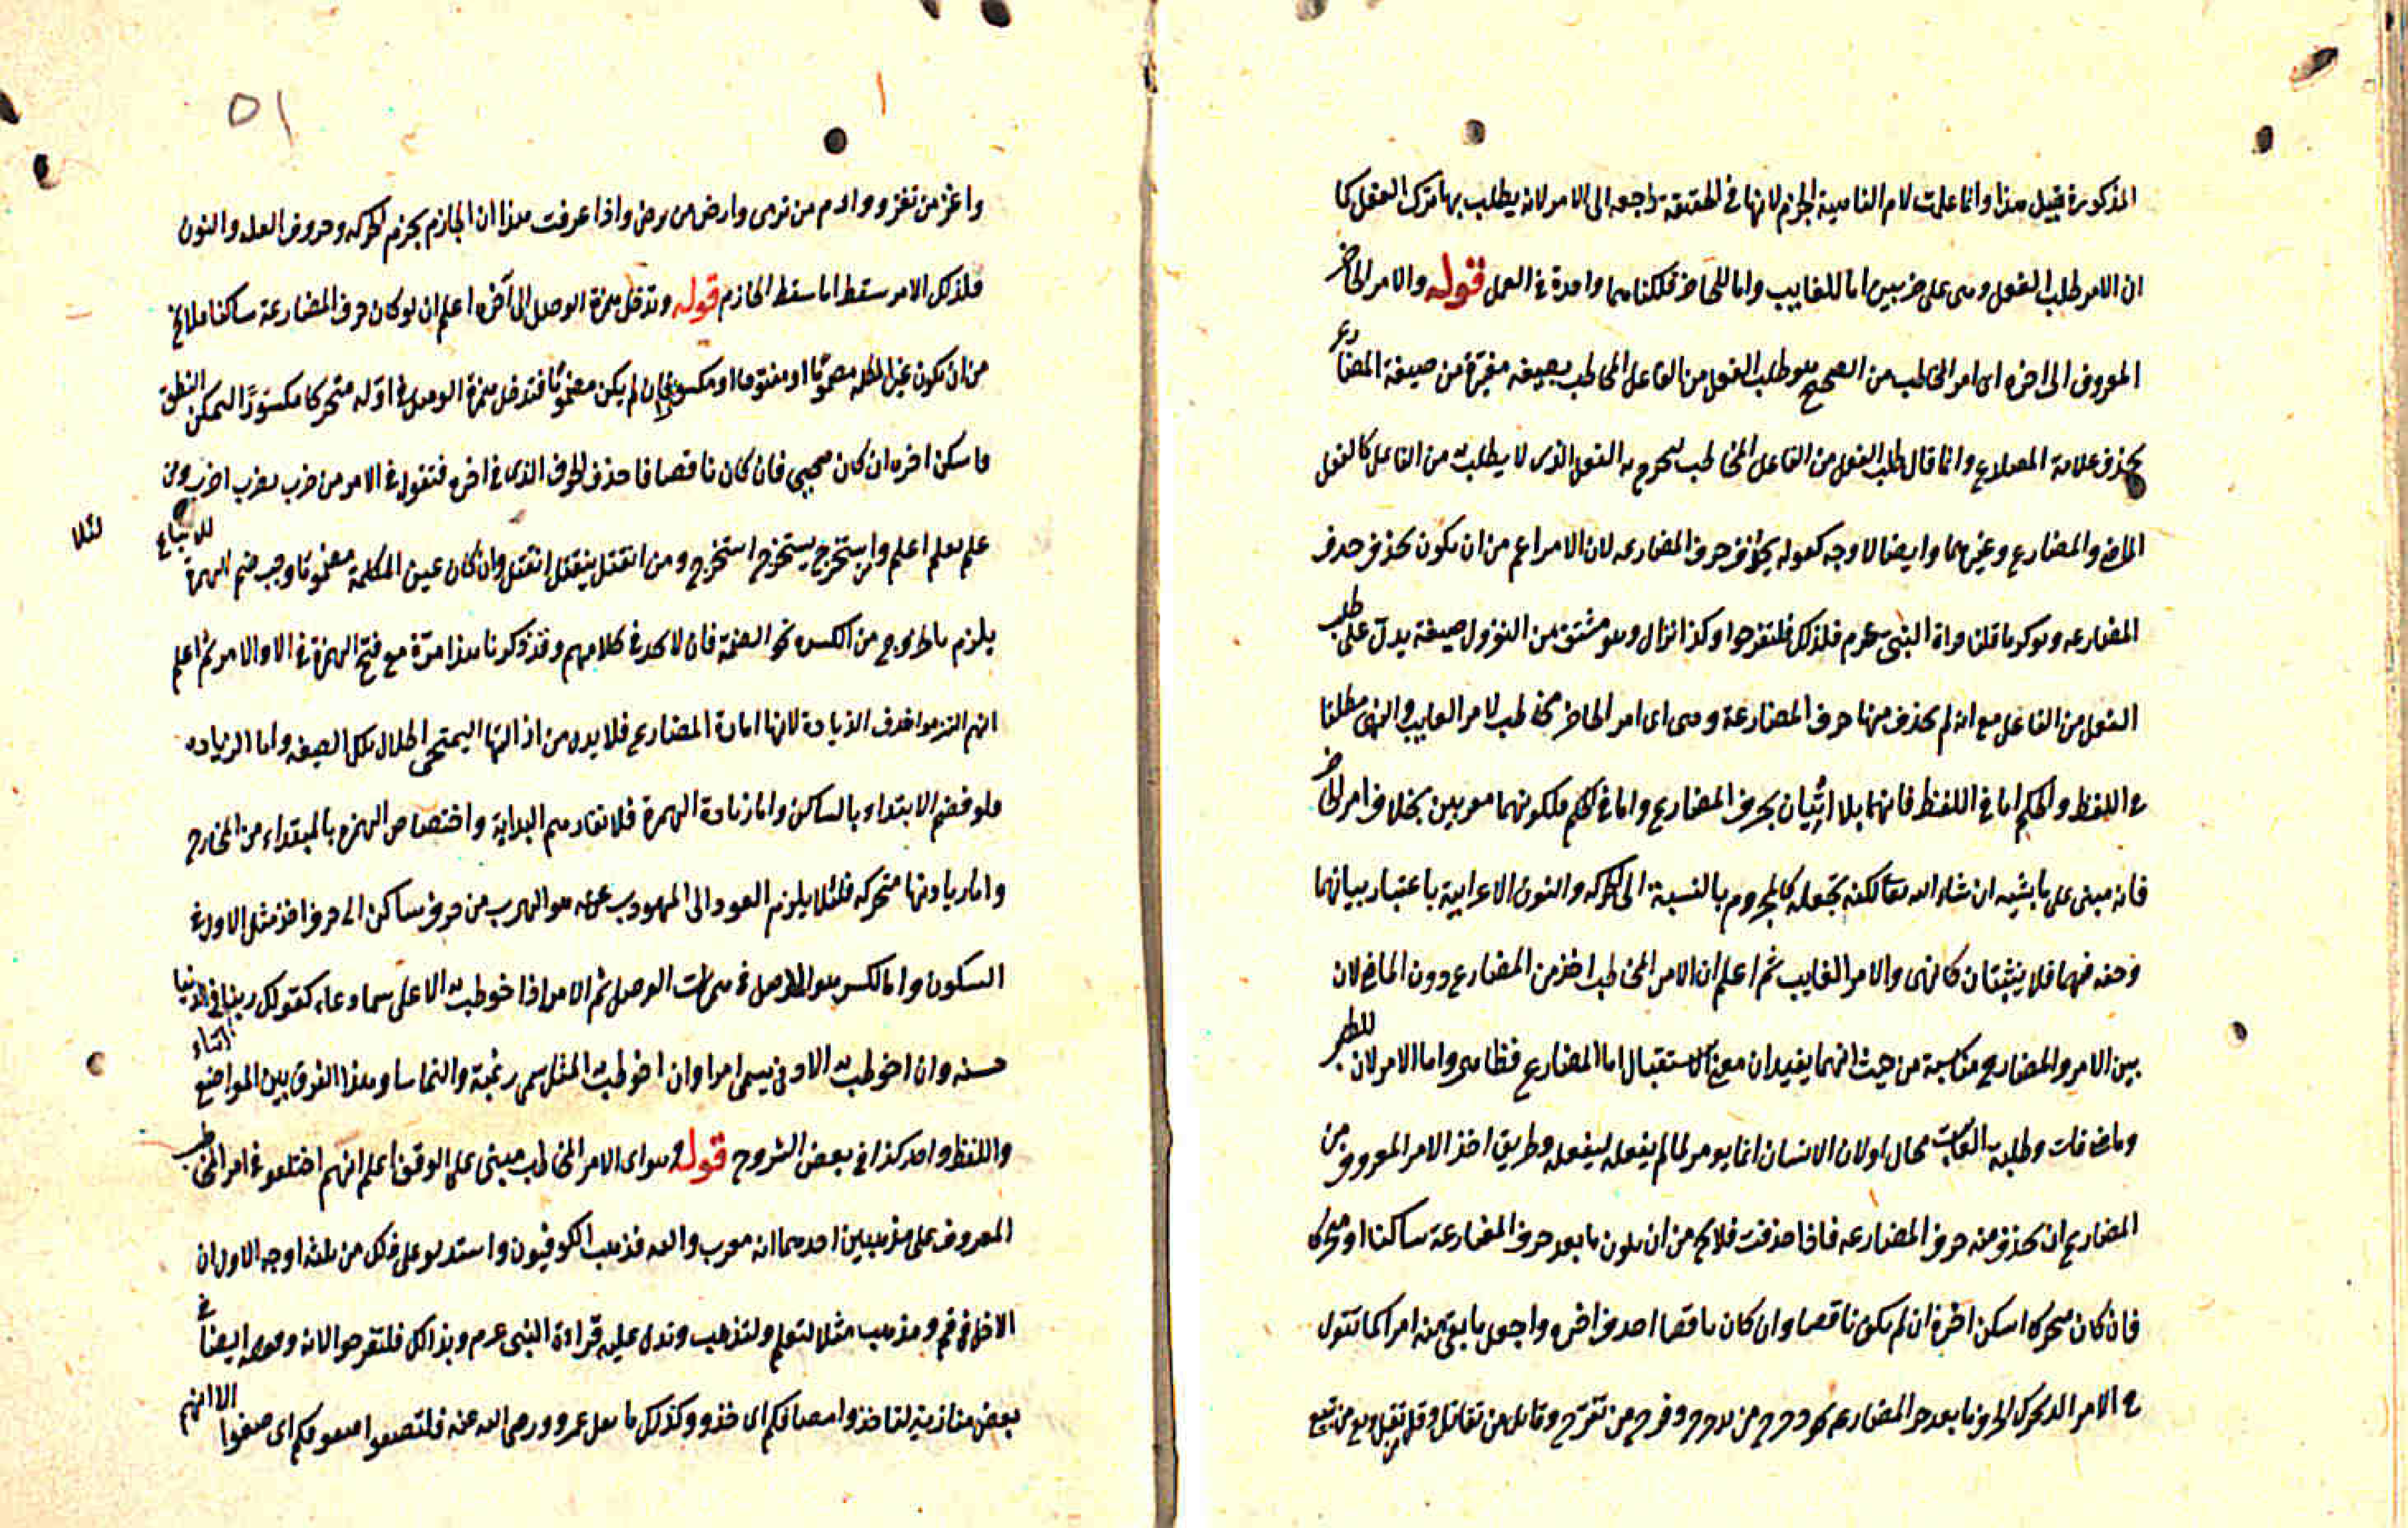 المذكورة قبيل هذا وانما عملت لام الناهية الجزم لانها في الحقيقة راجعة الى الامر لانه يطلب بها ترك الفعل كما
ان الامر طلب الفعل وهى على ضربين اما للغايب واما للحاضر فكلتاهما واحدة في العمل قوله والامر الحاضر
المعروف الى اخره اى امر المخاطب من الصحيح هو طلب الفعل من الفاعل المخاطب بصيغه مغيرة من صيغة المضارع
بحذف علامة المضارع وانما قال طلب الفعل من الفاعل المخاطب ليخرج به الفعل الذى لا يطلب به من الفاعل كالفعل
الماضى والمضارع وغيرهما وايضا لا وجه لقوله بحذف حرف المضارعه لان الامر اعم من ان يكون بحذف حرف
المضارعه ويوكد ما قلنا قراة النبى عرم فلذلك فلتفرحوا وكذا نزال وهو مشتق من النزول صيغة يدل على طلب
الفعل من الفاعل مع انه لم يحذف منها حرف المضارعة وهى اى امر الحاضر مخاطب لامر الغايب والنهى مطلقا
في اللفظ والحكم اما في اللفظ فانهما يأتيان بحرف المضارع واما في الحكم فلكونهما معربين بخلاف امر الحاضر
فانه مبنى على ما يشيه ان شاء الله تعالى لكنه تجعله كالمجزوم بالنسبة الى الحركه والنون الاعرابية باعتبار بيانهما
وحذفهما فلا يثبتان كالنهى والامر الغايب ثم اعلم ان الامر المخاطب اخذ من المضارع دون الماضى لان
بين الامر والمضارع مناسبة من حيث انهما يفيدان معنى الاستقبال اما المضارع فظاهر واما الامر لان للطلب
وما مضى فات وطلب الفائت محال اولان الانسان انما يومر لما لم يفعله ليفعله وطريق اخذ الامر المعروف من
المضارع ان يحذف منه حرف المضارعه فاذا حذفت فلا يخ من ان يكون ما بعد حرف المضارعة ساكنا او متحركا
فان كان متحركا اسكن اخره ان لم يكن ناقصا وان كان ناقصا احذف اخره واجعل ما بقى منه امرا كما تقول
في الامر المتحرك الحرف ما بعد حرف المضارعه نحو دحرج من تدحرج وفرح من تفرح وقاتل من تقاتل وقل من تقول وبع من تبيع
٥١
واغز من تغزو وارم من ترمى وارض من ترضى واذا عرفت هذا ان الجازم يجزم الحركه وحروف العله والنون
فلذلك الامر سقط اما سقط الجازم قوله وتدخل همزة الوصل الى آخره اعلم ان لو كان حرف المضارعة ساكنا فلا يخ
من ان يكون عين الكلمه مضموما او مفتوحا او مكسورا فان لم يكن مضموما فتدخل همزة الوصل في اوله متحركا مكسورا ليمكن النطق
فاسكن اخره ان كان صحيحا فان كان ناقصا فاحذف الحرف الذى في اخره فتقول في الامر من ضرب يضرب اضرب ومن
علم يعلم اعلم ومن استخرج يستخرج استخرج ومن انتقل ينتقل انتقل وان كان عين الكلمة مضموما وجب ضم الهمزة للاتباع لئلا
يلزم بالخروج من الكسره نحو الضمه فان لا يجد في كلامهم وقد ذكرنا هذا مرة مع فتح الهمزة في الاوالامر ثم اعلم
انهم التزموا حذف الزيادة لانها امارة المضارع فلا بد من ازالتها ليمتحى اطلال تلك الصيغه واما الزيادة
فلو فضم الابتداء بالساكن واما زيادة الهمزة فلانفادهم البداية واختصاص الهمزه بالمبتداء من المخارج
واما زيادتها متحركه فلئلا يلزم العود الى المهروب عنه هو الهرب من حرف ساكن الى حرف اخر مثل الاول في
السكون واما الكسر هو الاصل في همزات الوصل ثم الامر اذا خوطب به الاعلى سمى دعاء كقولك ربنا اتنا في الدنيا
حسنه وان اخوطب به الادنى يسمى امرا وان اخوطب به المثل سمى رغبة والتماسا وهذا الفرق بين المواضع
واللفظ واحد كذا في بعض الشروح قوله وهو اى الامر المخاطب مبنى على الوقف اعلم انهم اختلفوا في امر المخاطب
المعروف على مذهبين احدهما انه معرب واليه فذهب الكوفيون واستدلو على ذلك من ثلثه اوجه الاول ان
الاصل في قم ومذهب مثلا لتعلم ولتذهب وتدل عليه قراءة النبى عرم وبذالك فلتفرحوا لانه وقوله ايضا في
بعض مغازيه لتاخذوا مصافكم اى خذو وكذلك ما نقل عمرو ورضى الله عنه فلتصفوا صفوفكم اى صفوا الا انهم